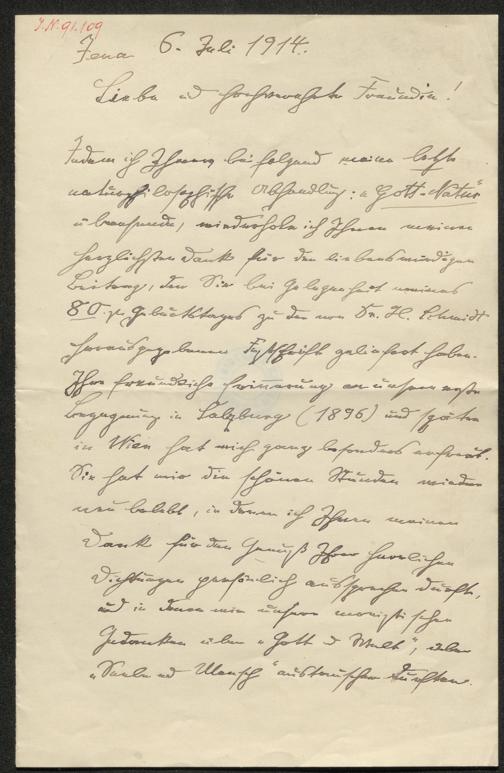 J.N. 91.109
Jena 6. Juli 1914.
Liebe u hochverehrte Freundin!
Indem ich Ihnen beifolgend meine letzte
naturphilosophische Abhandlung: „Gott-Natur"
übersende, wiederhole ich Ihnen meinen
herzlichsten Dank für den liebenswürdigen
Beitrag, den Sie bei Gelegenheit meines
80. Geburtstages zu der von Dr. H. Schmidt
herausgegebenen Festschrift geliefert haben.
Ihre freundliche Erinnerung an unsere erste
Begegnung in Salzburg (1896) und später
in Wien hat mich ganz besonders erfreut.
Sie hat mir die schönen Stunden wieder
neu belebt, in denen ich Ihnen meinen
Dank für den Genuß Ihrer herrlichen
Dichtungen persönlich aussprechen durfte,
und in denen wir unsere monistischen
Gedanken über „Gott u Welt", über
„Seele und Mensch" austauschen durften.